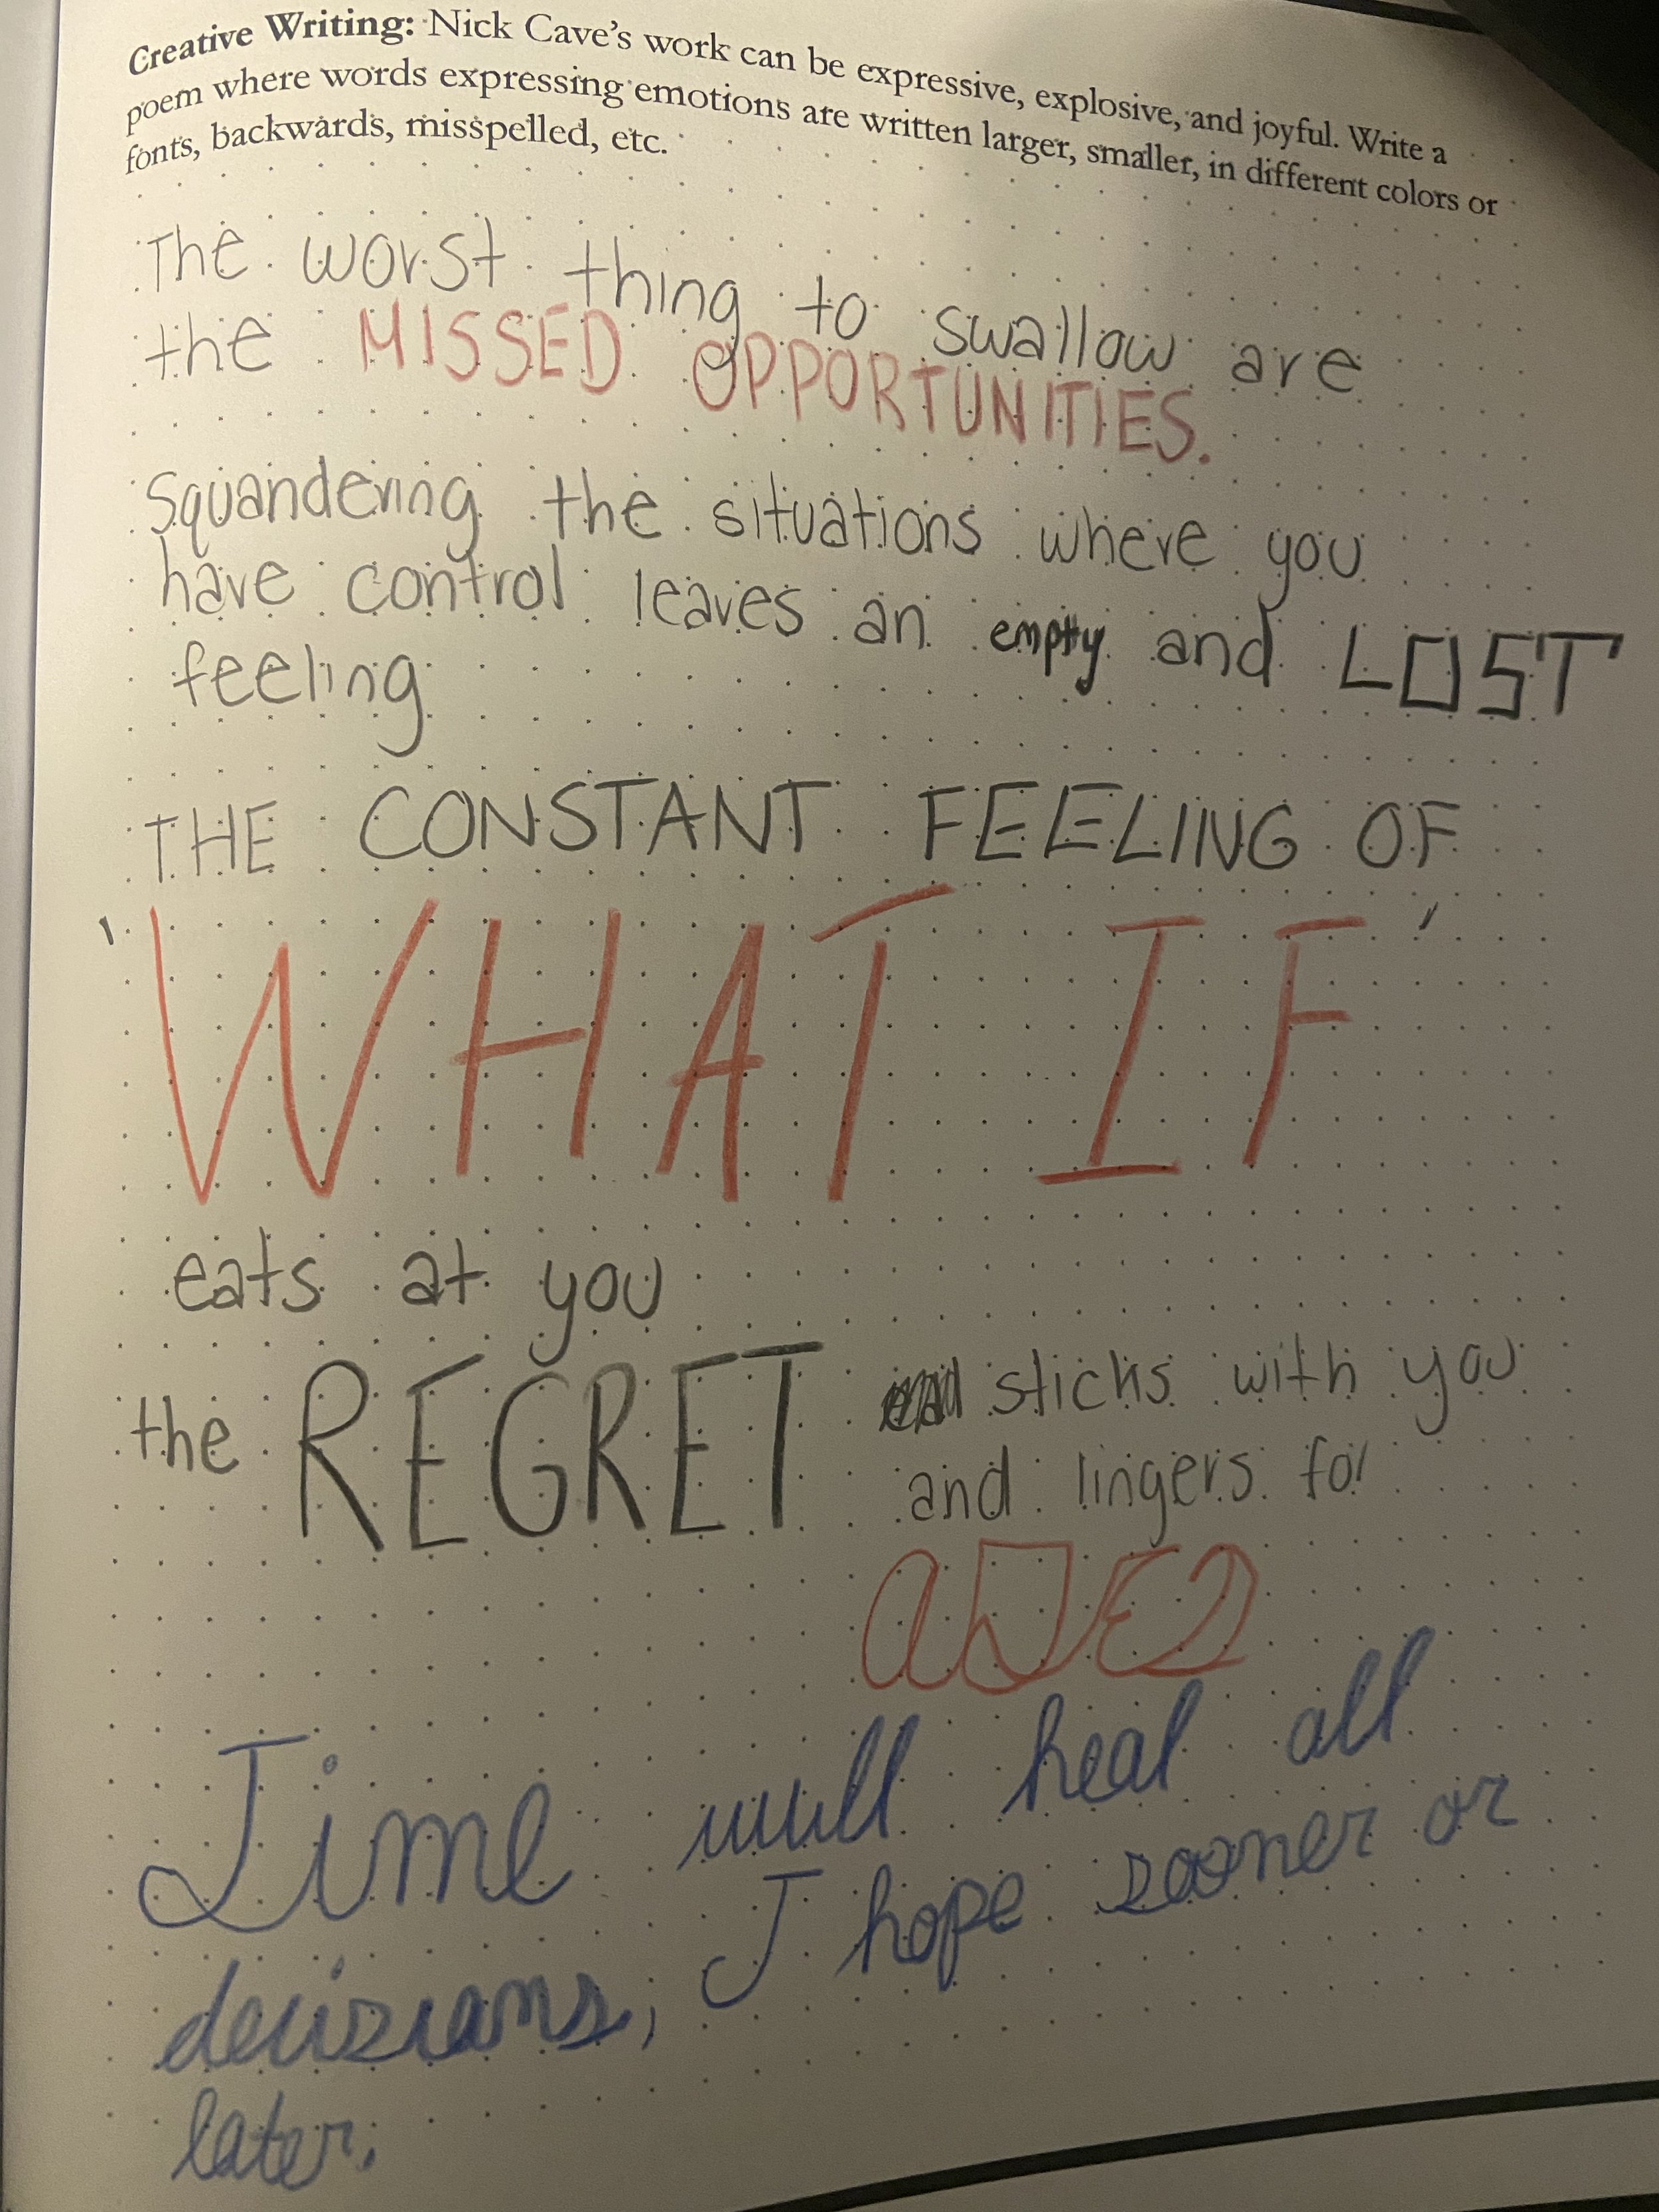 Creative Writing: Nick Cave's work can be expressive, explosive, and joyful. Write a
poem where words expressing emotions are written larger, smaller, in different colors or
fonts, backwards, misspelled, etc.
The worst thing to swallow are
the MISSED OPPORTUNITIES.
Squandering the situations where you
have control leaves an empty and LOST
feeling
THE CONSTANT FEELING OF
'WHAT IF'
eats at you
the REGRET sticks with you
and lingers for
Time will heal all
decisions, I hope sooner or
later.